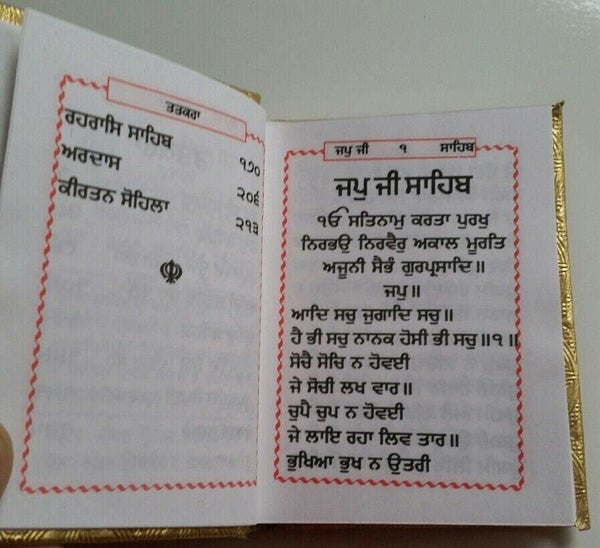 ਤਤਕਰਾ
ਰਹਰਾਸਿ ਸਾਹਿਬ ੧੭੦
ਅਰਦਾਸ ੨੦੬
ਕੀਰਤਨ ਸੋਹਿਲਾ ੨੧੩
ਜਪੁ ਜੀ ੧ ਸਾਹਿਬ
ਜਪੁ ਜੀ ਸਾਹਿਬ
ੴ ਸਤਿਨਾਮੁ ਕਰਤਾ ਪੁਰਖੁ
ਨਿਰਭਉ ਨਿਰਵੈਰੁ ਅਕਾਲ ਮੂਰਤਿ
ਅਜੂਨੀ ਸੈਭੰ ਗੁਰਪ੍ਰਸਾਦਿ॥
ਜਪੁ॥
ਆਦਿ ਸਚੁ ਜੁਗਾਦਿ ਸਚੁ॥
ਹੈ ਭੀ ਸਚੁ ਨਾਨਕ ਹੋਸੀ ਭੀ ਸਚੁ॥੧॥
ਸੋਚੈ ਸੋਚਿ ਨ ਹੋਵਈ
ਜੇ ਸੋਚੀ ਲਖ ਵਾਰ॥
ਚੁਪੈ ਚੁਪ ਨ ਹੋਵਈ
ਜੇ ਲਾਇ ਰਹਾ ਲਿਵ ਤਾਰ॥
ਭੁਖਿਆ ਭੁਖ ਨ ਉਤਰੀ